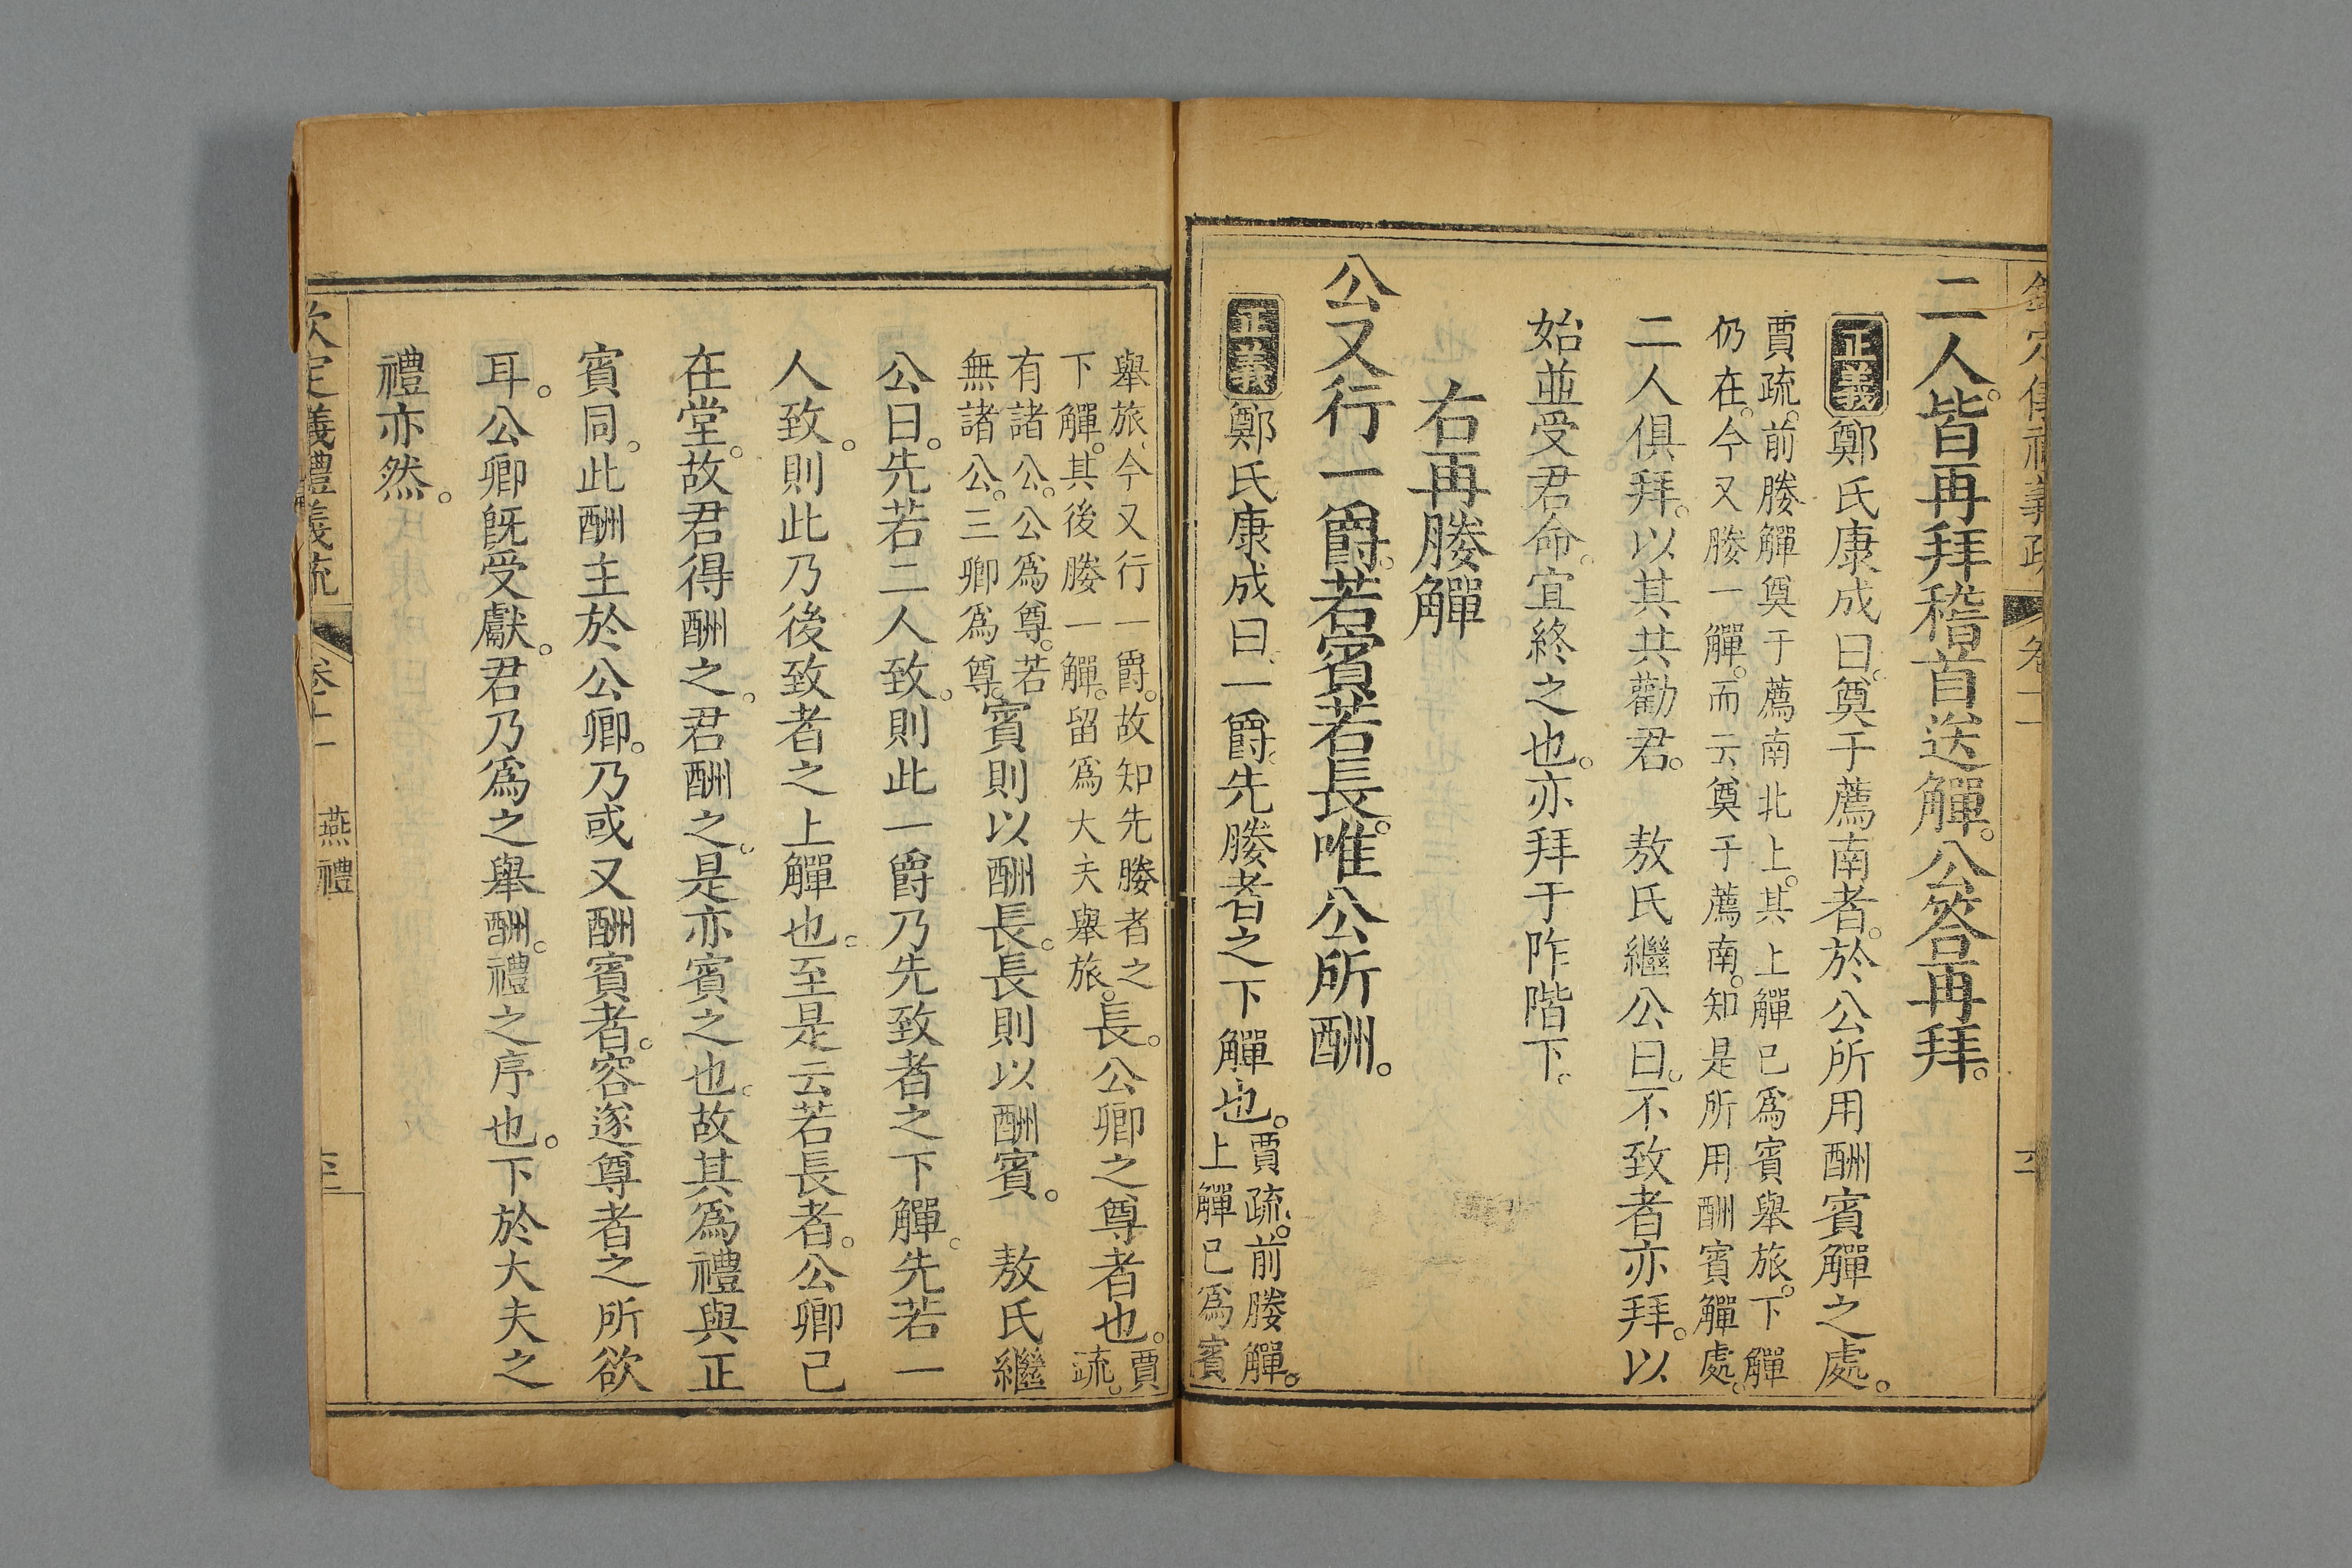 二人。皆再拜稽首送觶。公答再拜。
正義鄭氏康成曰。奠于薦南者。於公所用酬賓觶之處。
賈疏。前媵觶奠于薦南北上。其上觶已爲賓舉旅。下觶
仍在。今又媵一觶。而云奠于薦南。知是所用酬賓觶處。
二人俱拜。以其共勸君。　敖氏繼公曰。不致者亦拜。以
始並受君命。宜終之也。亦拜于阼階下。
右再媵觶
公又行一爵。若賓若長。唯公所酬。
正義鄭氏康成曰。一爵。先媵者之下觶也。
賈疏。前媵觶。
上觶已爲賓
舉旅、今又行一爵。故知先媵者之
下觶。其後媵一觶。留爲大夫舉旅。
長。公卿之尊者也。
賈
疏。
有諸公。公爲尊。若
無諸公。三卿爲尊。
賓則以酬長。長則以酬賓。　敖氏繼
公曰。先若二人致。則此一爵乃先致者之下觶。先若一
人致。則此乃後致者之上觶也。至是云若長者。公卿已
在堂。故君得酬之。君酬之。是亦賓之也。故其爲禮與正
賓同。此酬主於公卿。乃或又酬賓者。容遂尊者之所欲
耳。公卿旣受獻。君乃爲之舉酬。禮之序也。下於大夫之
禮亦然。
欽定義禮義疏
卷十一　燕禮